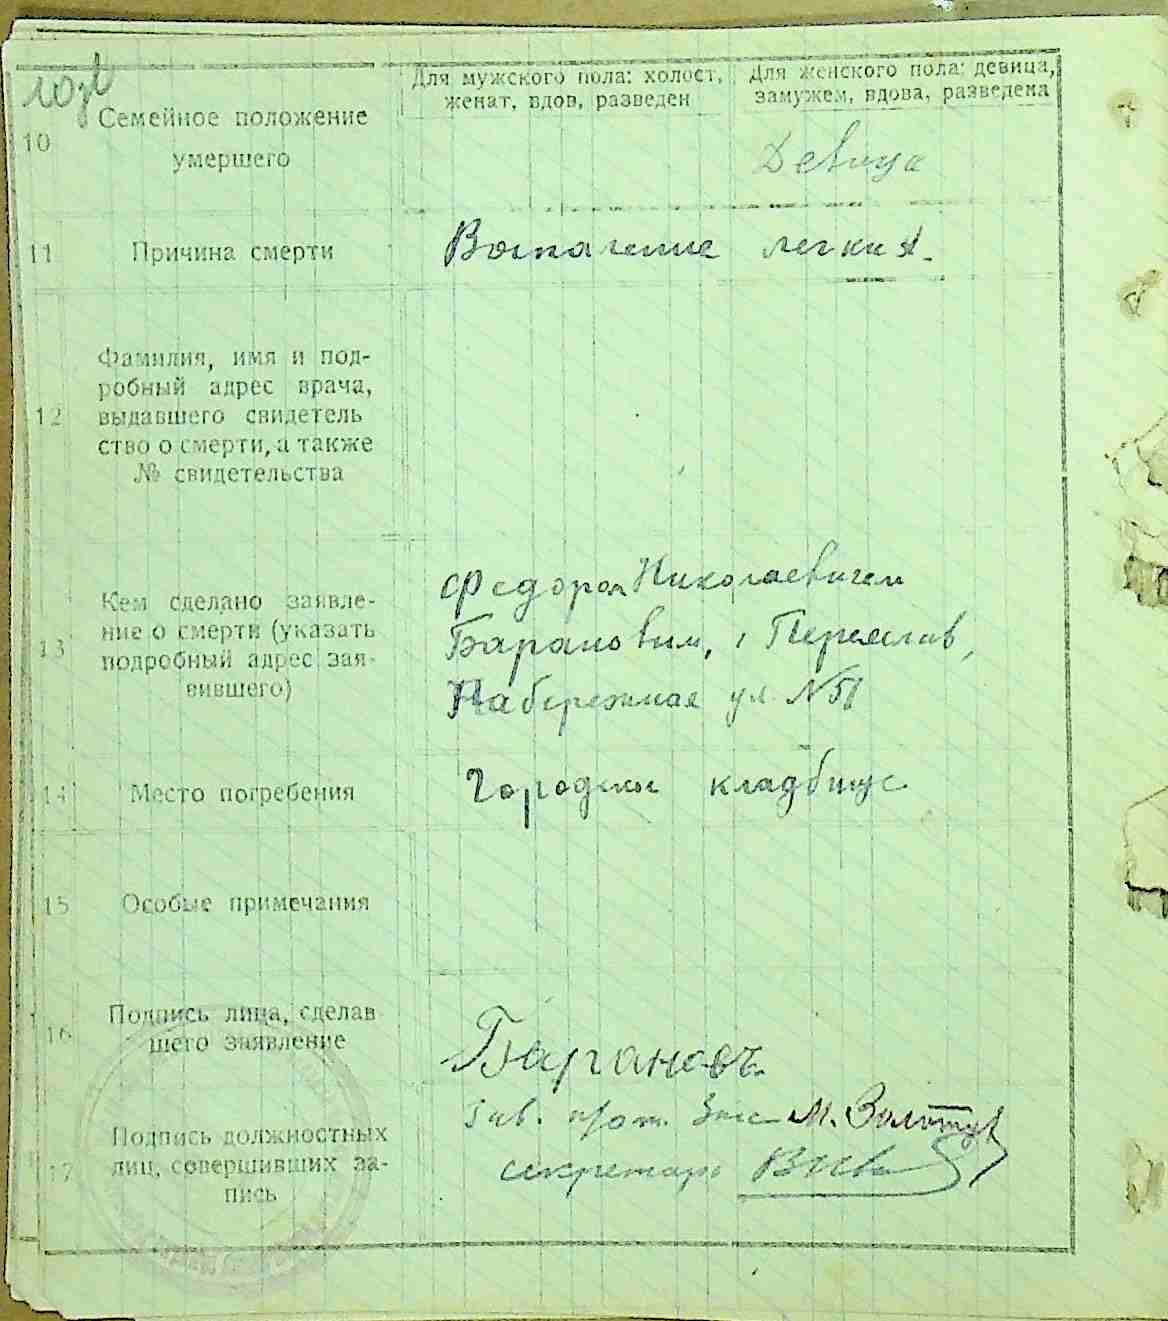 Для мужского пола: холост,
женат, вдов, разведен
Для женского пола: девица,
замужем, вдова, разведена
10
Семейное положение
умершего
Девица
11
Причина смерти
Воспаление легких.
12
Фамилия, имя и под-
робный адрес врача,
выдавшего свидетель
ство о смерти, а также
№ свидетельства
13
Кем сделано заявле-
ние о смерти (указать
подробный адрес зая-
вившего)
Федором Николаевичем
Барановым,
Набережная ул. №
14
Место погребения
Городское кладбище
15
Особые примечания
16
Подпись лица, сделав
шего заявление
Барановъ
17
Подпись должностных
лиц, совершивших за-
пись
Зав. М.
секретарь